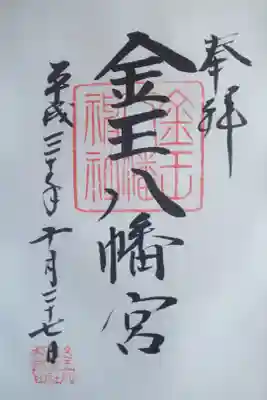 奉拝
金王八幡宮
金王
八幡
神社
平成三十年十月二十七日